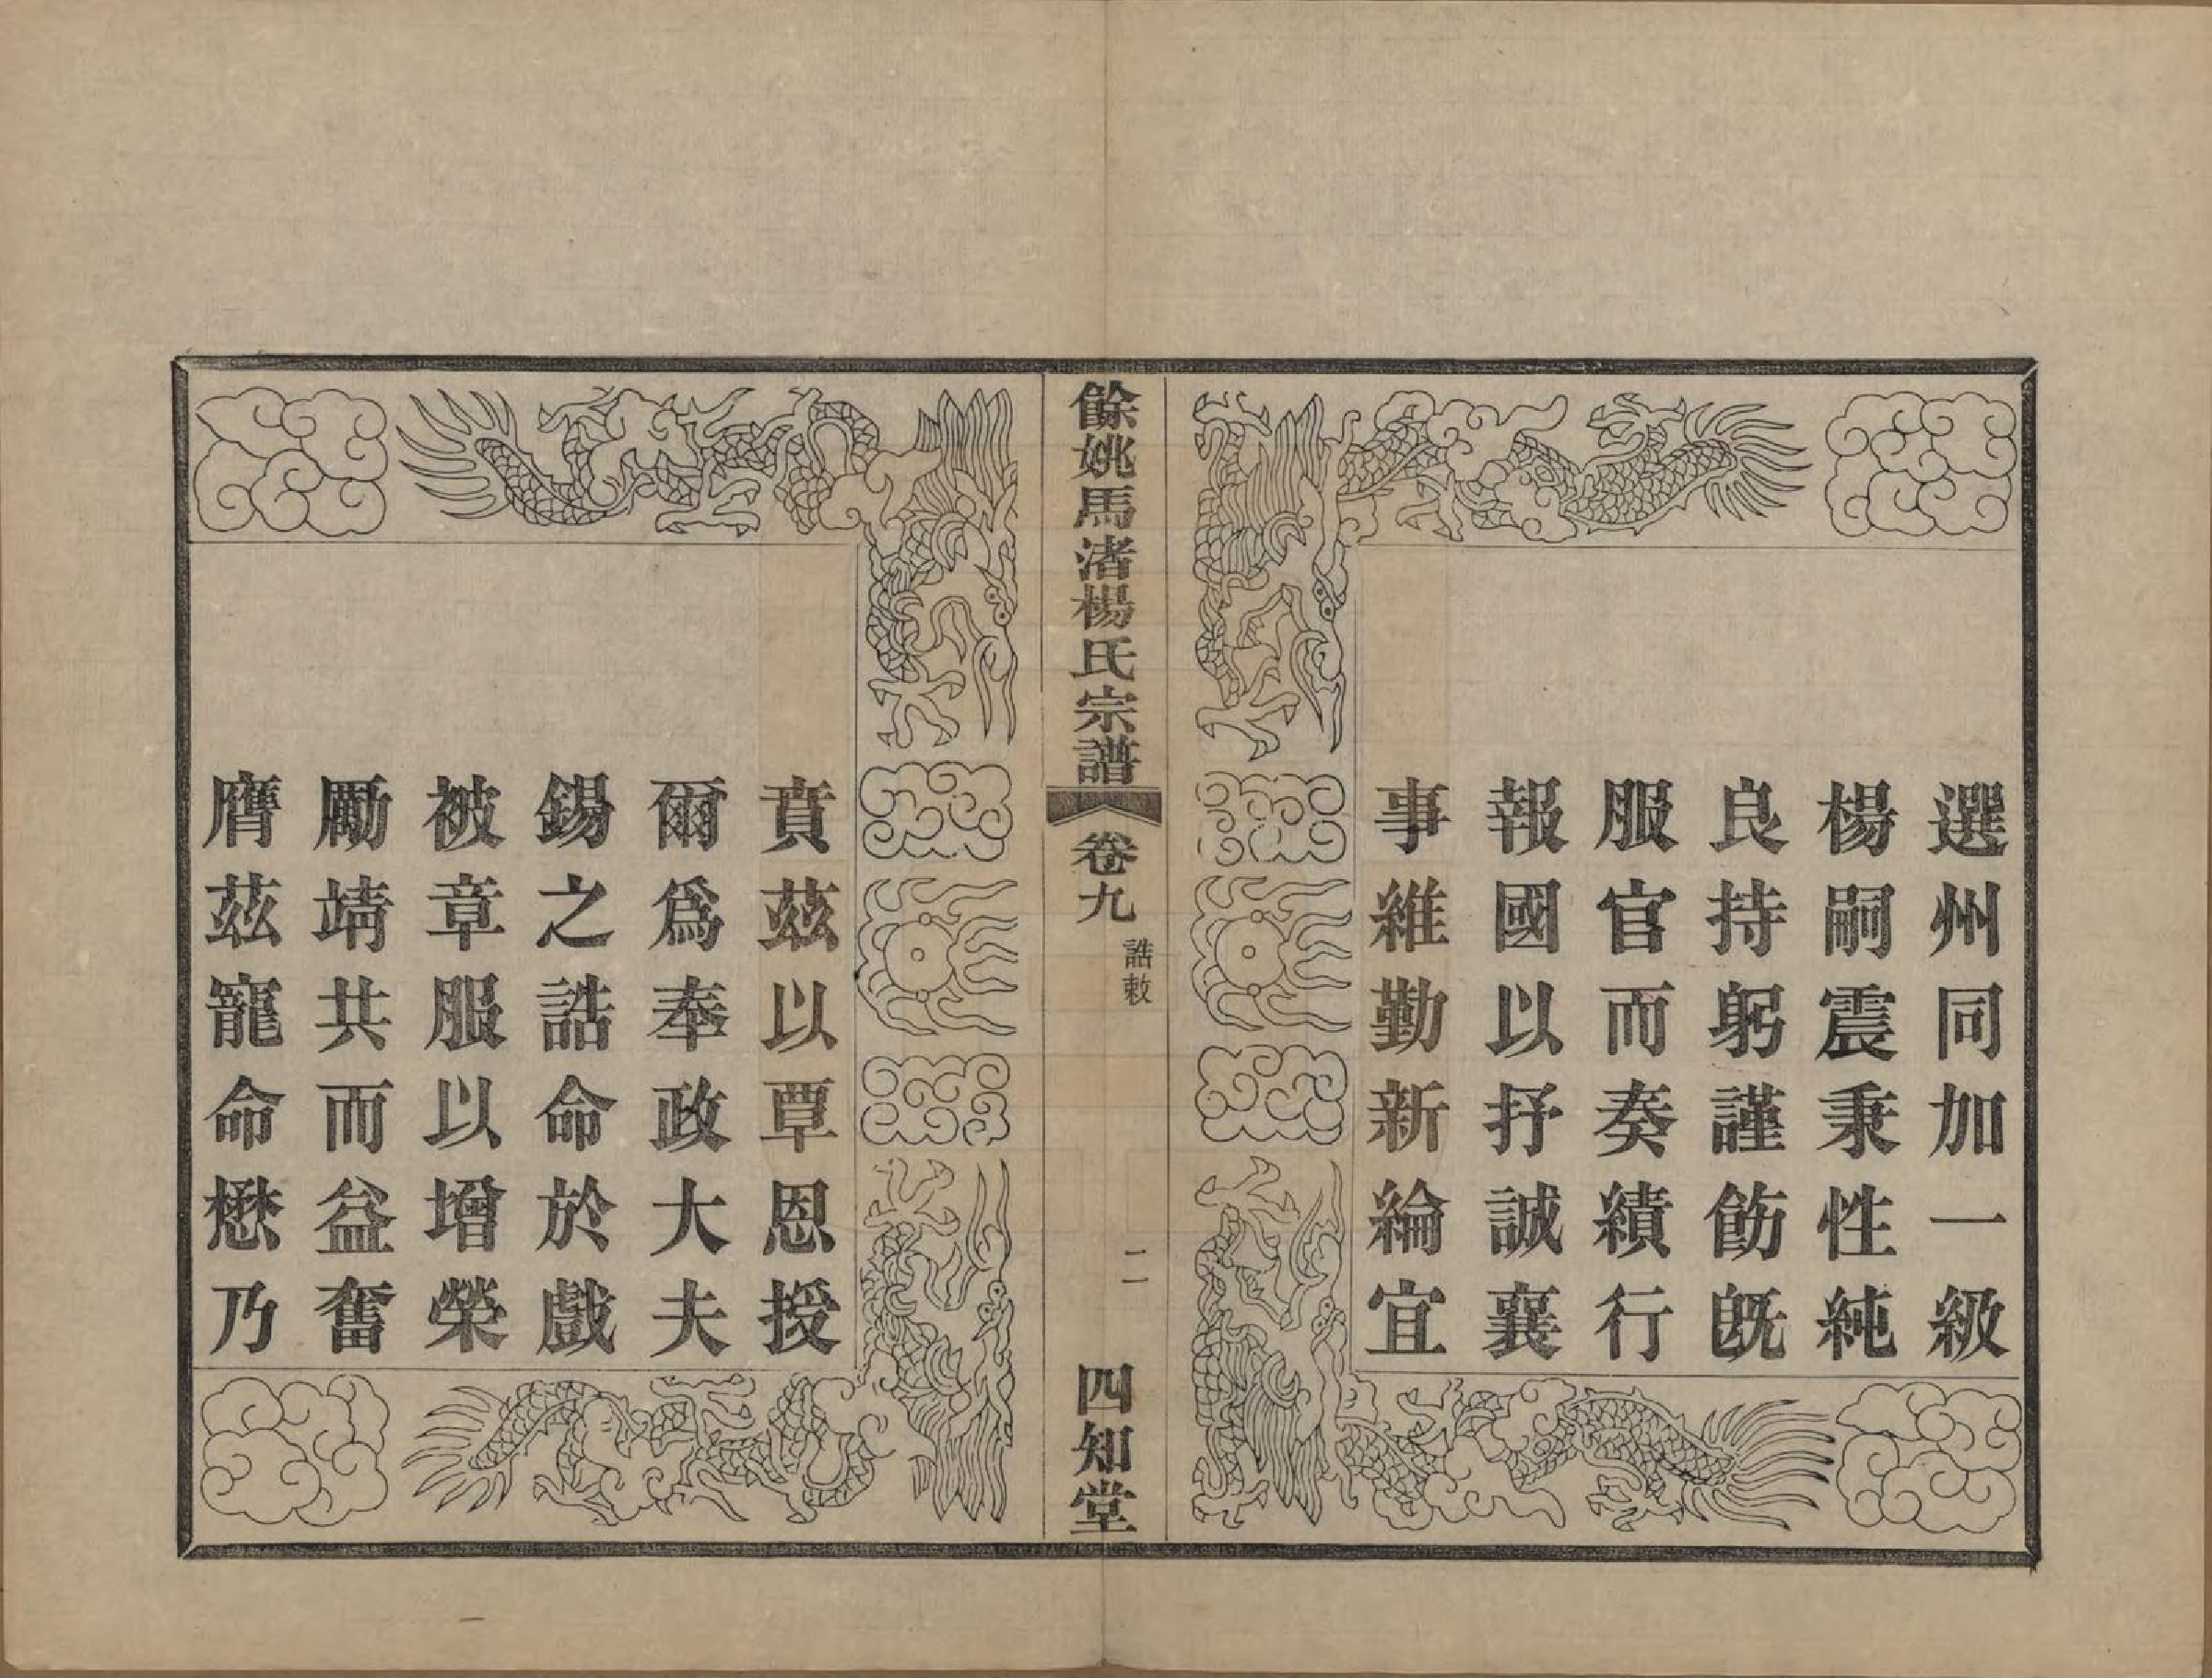 選州同加一級
楊嗣震秉性純
良持躬謹飭旣
服官而奏績行
報國以抒誠襄
事維勤新綸宜
餘姚馬渚楊氏宗譜
卷九
誥敕
二
四知堂
賁茲以覃恩授
爾爲奉政大夫
錫之誥命於戲
被章服以增榮
勵靖共而益奮
膺茲寵命懋乃